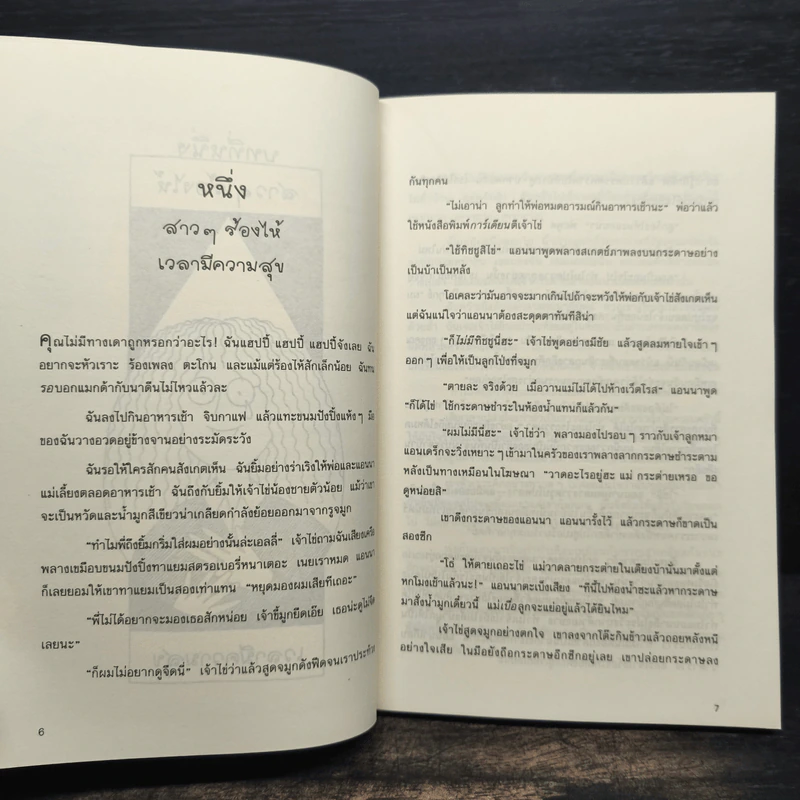 หนึ่ง
สาวๆ ร้องไห้
เวลามีความสุข
คุณไม่มีทางเดาถูกหรอกว่าอะไร! ฉันแฮปปี้ แฮปปี้ แฮปปี้จังเลย ฉัน
อยากจะหัวเราะ ร้องเพลง ตะโกน และแม้แต่ร้องไห้สักเล็กน้อย ฉันทน
รอบอกแมกด้ากับนาดีนไม่ไหวแล้วละ
ฉันลงไปกินอาหารเช้า จิบกาแฟ แล้วแทะขนมปังปิ้งแห้งๆ มือ
ของฉันวางอวดอยู่ข้างจานอย่างระมัดระวัง
ฉันรอให้ใครสักคนสังเกตเห็น ฉันยิ้มอย่างร่าเริงให้พ่อและแอนนา
แม่เลี้ยงตลอดอาหารเช้า ฉันถึงกับยิ้มให้เจ้าไข่น้องชายตัวน้อย แม้ว่าเขา
จะเป็นหวัดและน้ำมูกสีเขียวน่าเกลียดกำลังย้อยออกมาจากรูจมูก
"ทำไมพี่ถึงยิ้มกริ่มใส่ผมอย่างนั้นล่ะเอลลี่" เจ้าไข่ถามฉันเสียงเครือ
พลางเขมือบขนมปังปิ้งทาแยมสตรอเบอรี่หนาเตอะ เนยเราหมด แอนนา
ก็เลยยอมให้เขาทาแยมเป็นสองเท่าแทน "หยุดมองผมเสียทีเถอะ"
"พี่ไม่ได้อยากจะมองเธอสักหน่อย เจ้าขี้มูกยืดเอ๊ย เธอน่ะดูไม่จืด
เลยนะ"
"ก็ผมไม่อยากดูจืดนี่" เจ้าไข่ว่าแล้วสูดจมูกดังฟืดจนเราประท้วง
6
กันทุกคน
"ไม่เอาน่า ลูกทำให้พ่อหมดอารมณ์กินอาหารเช้านะ" พ่อว่าแล้ว
ใช้หนังสือพิมพ์การ์เดียนตีเจ้าไข่
"ใช้ทิชชูสิไข่" แอนนาพูดพลางสเกตช์ภาพลงบนกระดาษอย่าง
เป็นบ้าเป็นหลัง
โอเคละว่ามันอาจจะมากเกินไปถ้าจะหวังให้พ่อกับเจ้าไข่สังเกตเห็น
แต่ฉันแน่ใจว่าแอนนาต้องสะดุดตาทันทีสิน่า
"ก็ไม่มีทิชชูนี่ฮะ" เจ้าไข่พูดอย่างมีชัย แล้วสูดลมหายใจเข้าๆ
ออกๆ เพื่อให้เป็นลูกโป่งที่จมูก
"ตายละ จริงด้วย เมื่อวานแม่ไม่ได้ไปห้างเว็ตโรส" แอนนาพูด
"ก็ได้ไข่ ใช้กระดาษชำระในห้องน้ำแทนก็แล้วกัน"
"ผมไม่มีนี่ฮะ" เจ้าไข่ว่า พลางมองไปรอบๆ ราวกับเจ้าลูกหมา
แอนเดร็กซ์จะวิ่งเหยาะๆ เข้ามาในครัวของเราพลางลากกระดาษชำระตาม
หลังเป็นทางเหมือนในโฆษณา "วาดอะไรอยู่ฮะ แม่ กระต่ายเหรอ ขอ
ดูหน่อยสิ"
เขาดึงกระดาษของแอนนา แอนนารั้งไว้ แล้วกระดาษก็ขาดเป็น
สองซีก
"โธ่ ให้ตายเถอะไข่ แม่วาดลายกระต่ายในเตียงบ้านั่นมาตั้งแต่
หกโมงเช้าแล้วนะ!" แอนนาตะเบ็งเสียง "ทีนี้ไปห้องน้ำซะแล้วหากระดาษ
มาสั่งน้ำมูกเดี๋ยวนี้ แม่เบื่อลูกจะแย่อยู่แล้วได้ยินไหม"
เจ้าไข่สูดจมูกอย่างตกใจ เขาลงจากโต๊ะกินข้าวแล้วถอยหลังหนี
อย่างใจเสีย ในมือยังถือกระดาษอีกซีกอยู่เลย เขาปล่อยกระดาษลง
7